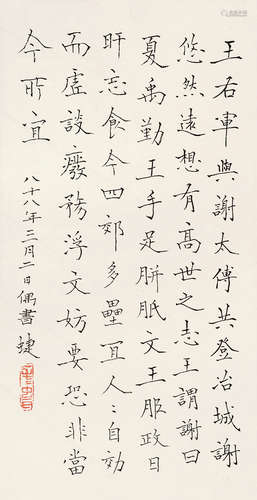 王右軍與謝太傅共登冶城謝
悠然遠想有高世之志王謂謝曰
夏禹勤王手足胼胝文王服政日
旰忘食今四郊多壘宜人々自効
而虛談廢務浮文妨要恐非當
今所宜
八十八年三月二日偶書捷